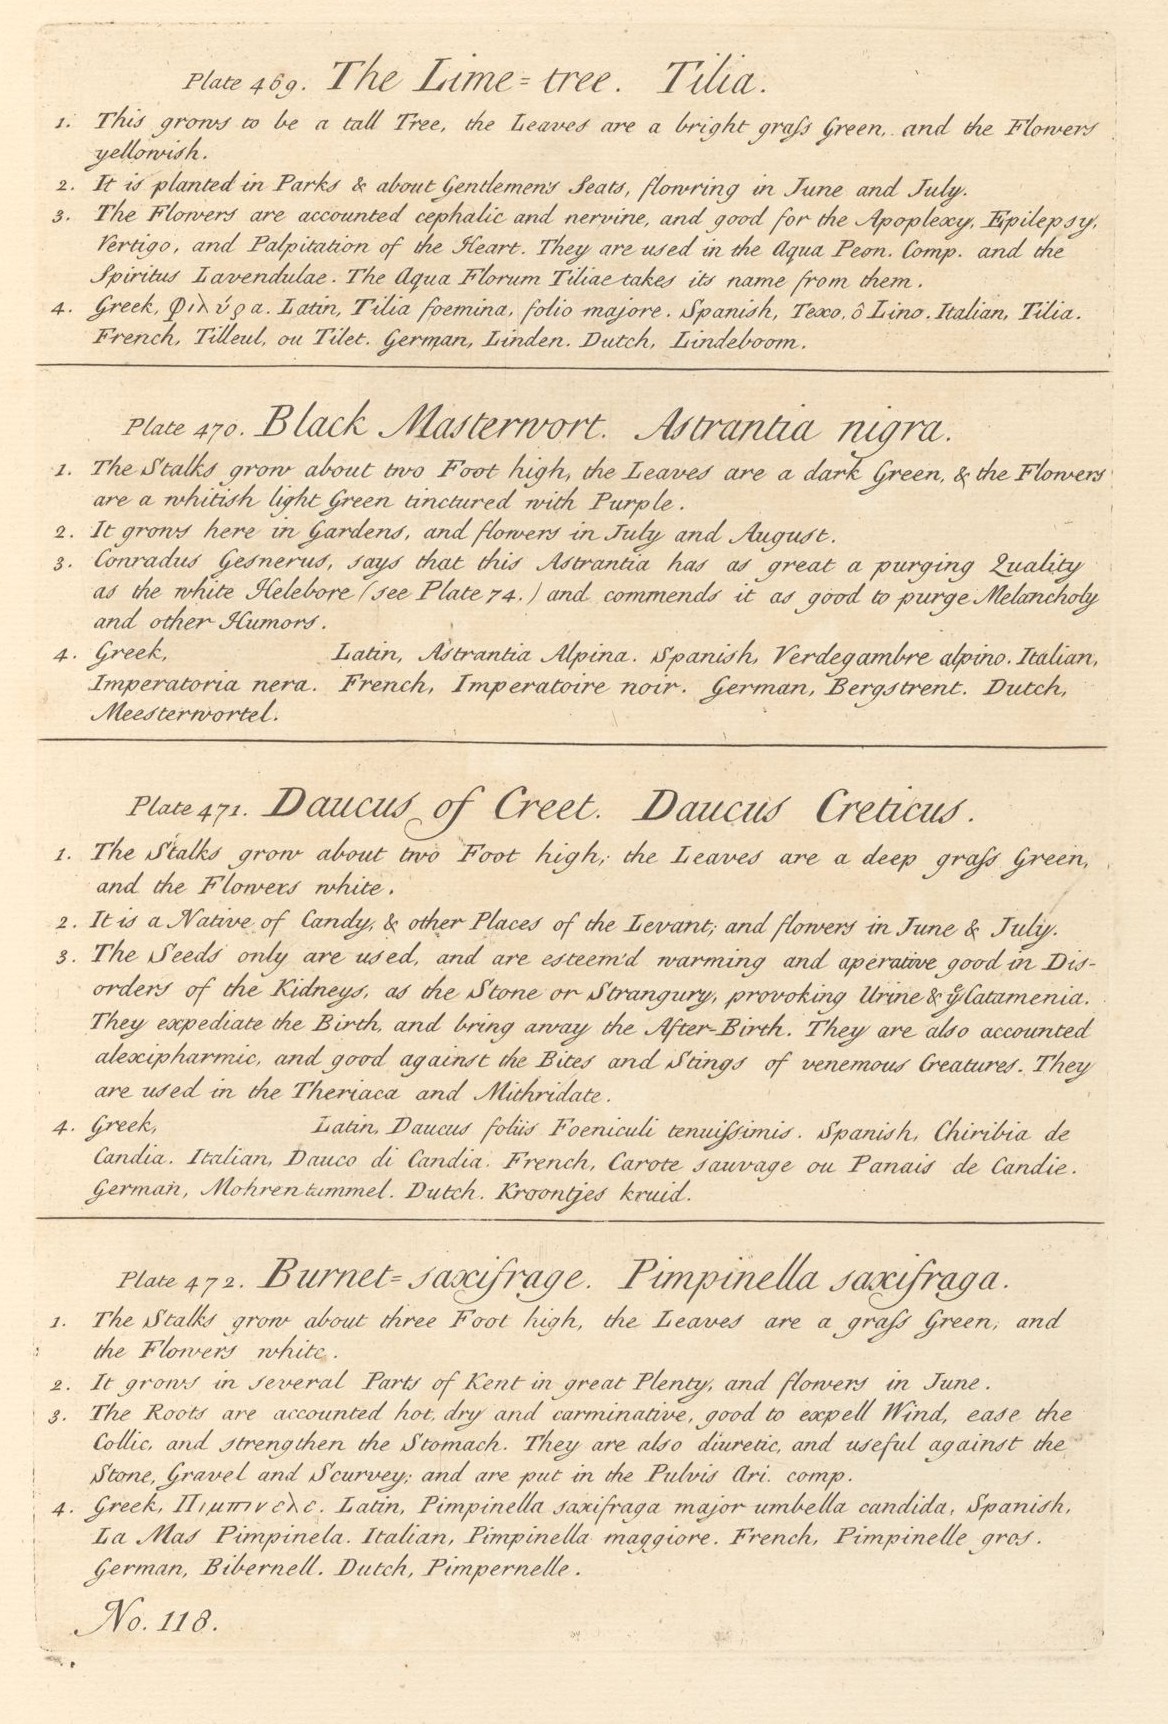 Plate 469. The Lime=tree. Tilia.
1. This grows to be a tall Tree, the Leaves are a bright graſs Green, and the Flowers
yellowish.
2. It is planted in Parks & about Gentlemens Seats, flowring in June and July.
3. The Flowers are accounted cephalic and nervine, and good for the Apoplexy, Epilepsy,
Vertigo, and Palpitation of the Heart. They are used in the Aqua Peon. Comp. and the
Spiritus Lavendulae. The Aqua Florum Tiliae takes its name from them.
4. Greek, Φιλύρα. Latin, Tilia foemina, folio majore. Spanish, Texo, ô Lino. Italian, Tilia.
French, Tilleul, ou Tilet. German, Linden. Dutch, Lindeboom.
Plate 470. Black Masterwort. Astrantia nigra.
1. The Stalks grow about two Foot high, the Leaves are a dark Green, & the Flowers
are a whitish light Green tinctured with Purple.
2. It grows here in Gardens, and flowers in July and August.
3. Conradus Gesnerus, says that this Astrantia has as great a purging Quality
as the white Helebore (see Plate 74.) and commends it as good to purge Melancholy
and other Humors.
4. Greek, Latin, Astrantia Alpina. Spanish, Verdegambre alpino. Italian,
Imperatoria nera. French, Imperatoire noir. German, Bergstrent. Dutch,
Meesterwortel.
Plate 471. Daucus of Creet. Daucus Creticus.
1. The Stalks grow about two Foot high, the Leaves are a deep graſs Green,
and the Flowers white.
2. It is a Native of Candy, & other Places of the Levant; and flowers in June & July.
3. The Seeds only are used, and are esteem'd warming and aperative good in Dis-
orders of the Kidneys, as the Stone or Strangury, provoking Urine & yͤ Catamenia.
They expediate the Birth, and bring away the After-Birth. They are also accounted
alexipharmic, and good against the Bites and Stings of venemous Creatures. They
are used in the Theriaca and Mithridate.
4. Greek, Latin, Daucus foliis Foeniculi tenuiſsimis. Spanish, Chiribia de
Candia. Italian, Dauco di Candia. French, Carote sauvage ou Panais de Candie.
German, Mohrenkummel. Dutch. Kroontjes kruid.
Plate 472. Burnet=saxifrage. Pimpinella saxifraga.
1. The Stalks grow about three Foot high, the Leaves are a graſs Green, and
the Flowers white.
2. It grows in several Parts of Kent in great Plenty, and flowers in June.
3. The Roots are accounted hot, dry and carminative, good to expell Wind, ease the
Collic, and strengthen the Stomach. They are also diuretic, and useful against the
Stone, Gravel and Scurvey; and are put in the Pulvis Ari. comp.
4. Greek, Πιμπινελε. Latin, Pimpinella saxifraga major umbella candida, Spanish,
La Mas Pimpinela. Italian, Pimpinella maggiore. French, Pimpinelle gros.
German, Bibernell. Dutch, Pimpernelle.
No. 118.